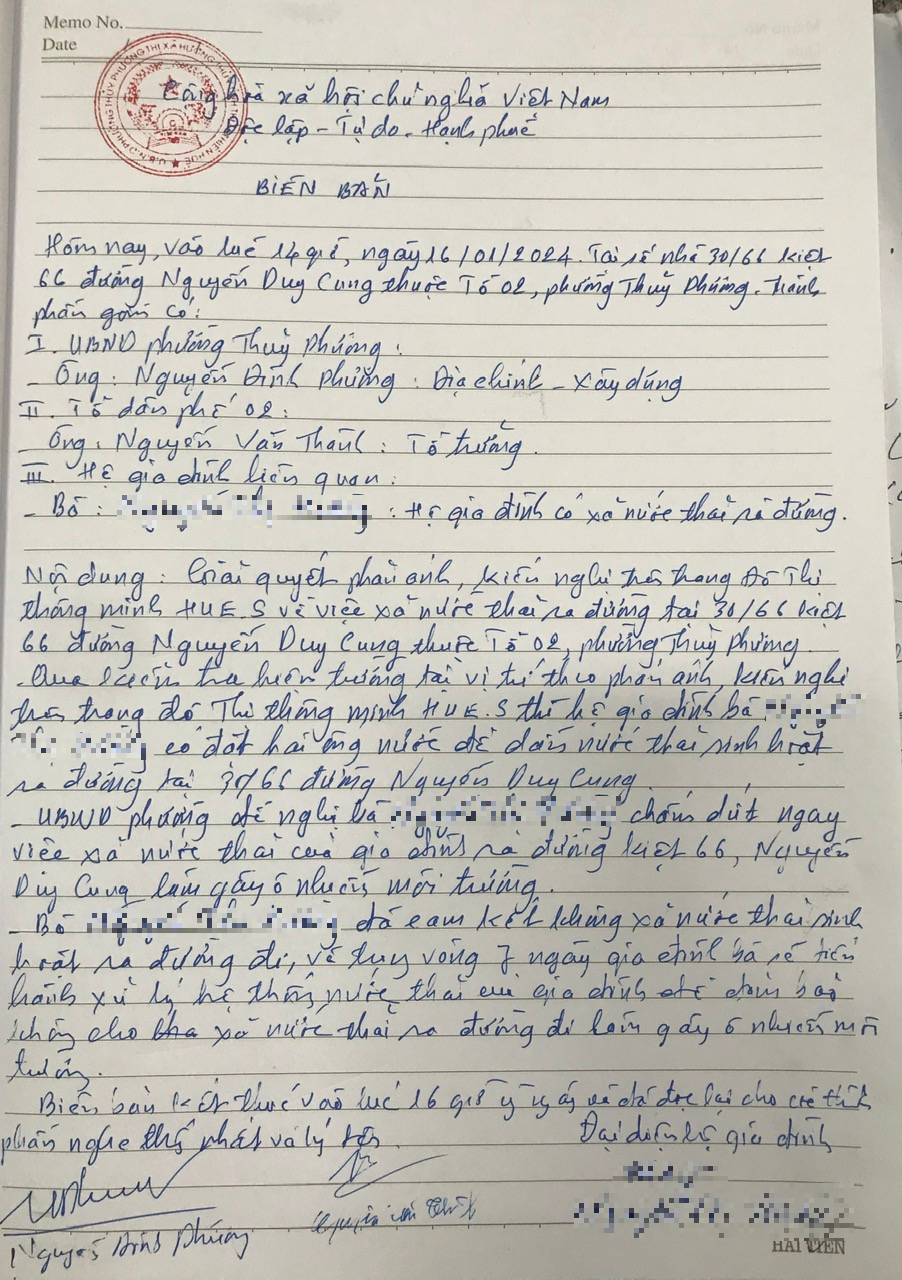 Memo No.
Date
Cộng hoà xã hội chủ nghĩa Việt Nam
Độc lập - Tự do - Hạnh phúc
BIÊN BẢN
Hôm nay, vào lúc 14 giờ, ngày 16/01/2024. Tại số nhà 30/66 kiệt
66 đường Nguyễn Duy Cung thuộc Tổ 02, phường Thuỷ Phương. Thành
phần gồm có:
I. UBND phường Thuỷ Phương:
- Ông: Nguyễn Đình Phương: Địa chính - Xây dựng
II. Tổ dân phố 02:
- Ông: Nguyễn Văn Thành: Tổ trưởng.
III. Hộ gia đình liên quan:
- Bà: : Hộ gia đình có xả nước thải ra đường.
Nội dung: Giải quyết phản ánh, kiến nghị trên trang Đô Thị
thông minh HUE.S về việc xả nước thải ra đường tại 30/66 kiệt
66 đường Nguyễn Duy Cung thuộc Tổ 02, phường Thuỷ Phương.
- Qua kiểm tra hiện trường tại vị trí theo phản ánh, kiến nghị
trên trang đô Thị thông minh HUE.S thì hộ gia đình bà
có đặt hai ống nước để dẫn nước thải sinh hoạt
ra đường tại 30/66 đường Nguyễn Duy Cung.
- UBND phường đề nghị bà chấm dứt ngay
việc xả nước thải của gia đình ra đường kiệt 66, Nguyễn
Duy Cung làm gây ô nhiễm môi trường.
- Bà đã cam kết không xả nước thải sinh
hoạt ra đường đi, và trong vòng 7 ngày gia đình bà sẽ tiến
hành xử lý hệ thống nước thải của gia đình để đảm bảo
không cho xả nước thải ra đường đi làm gây ô nhiễm môi
trường.
Biên bản kết thúc vào lúc 16 giờ cùng ngày và đã đọc lại cho các thành
phần nghe thống nhất và ký tên.
Đại diện hộ gia đình
Nguyễn Đình Phương
HẢI TIẾN